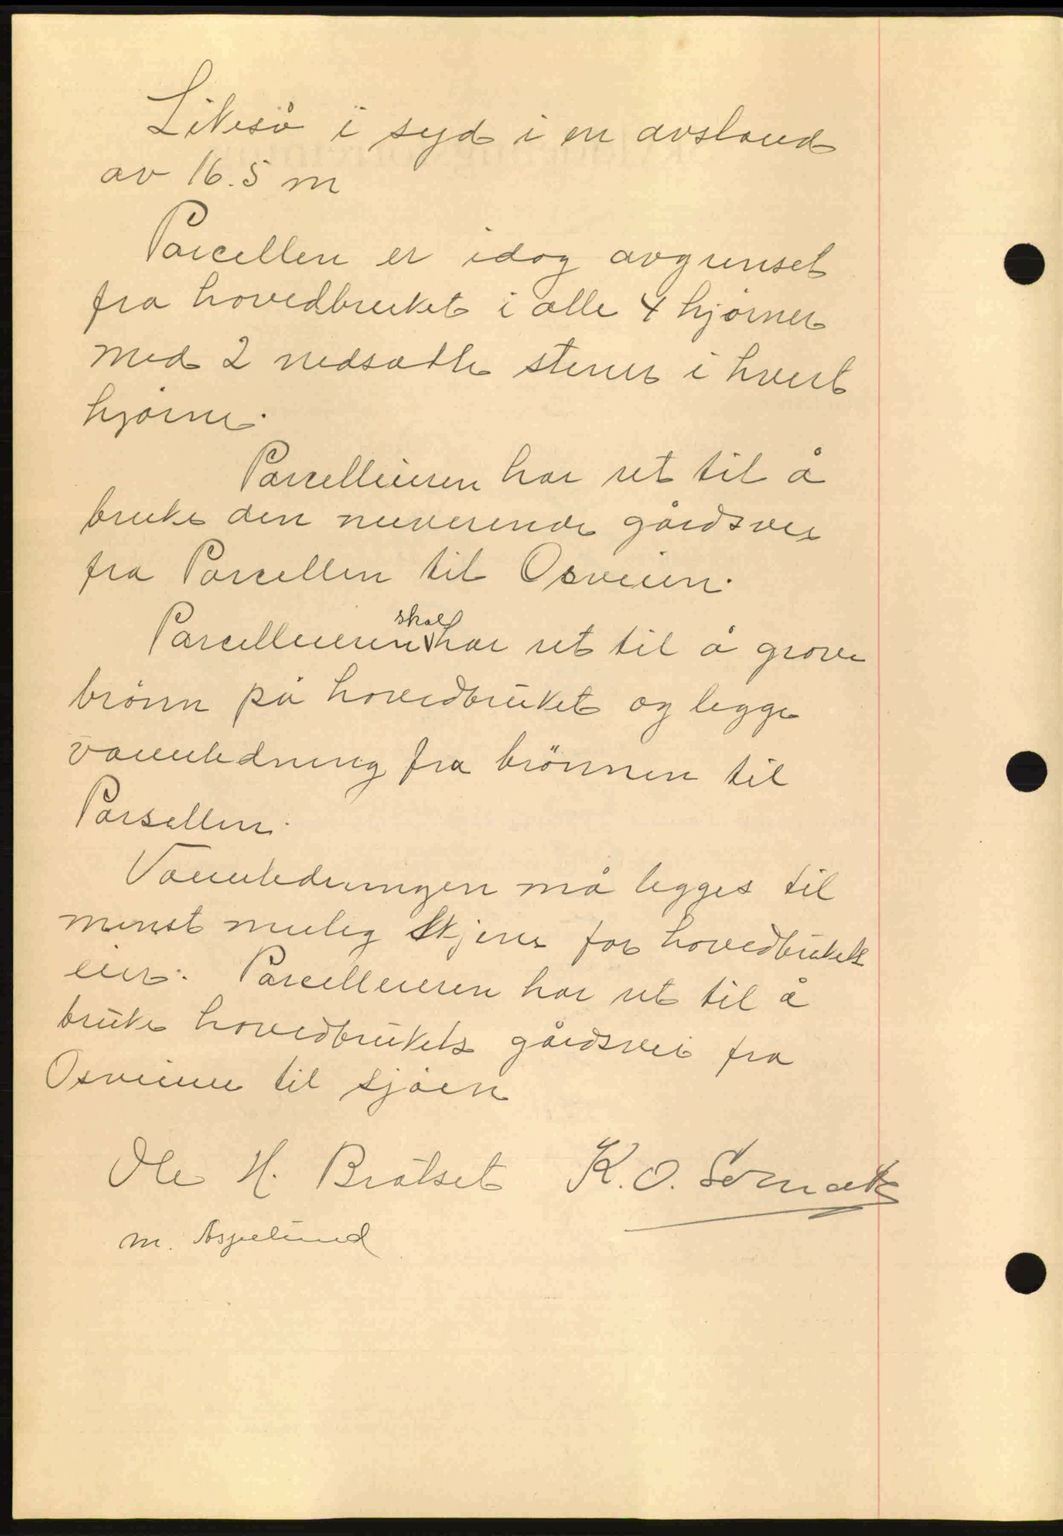 Likesö i syd i en avstand
av 16.5 m
Parcellen er idag avgrenset
fra hovedbruket i alle 4 hjørner
med 2 nedsatte stener i hvert
hjørne.
Parcelleieren har ret til å
bruke den nuverende gårdsvei
fra Parcellen til Osveien.
Parcelleieren skal har ret til å grave
brönn på hovedbruket og legge
vannledning fra brönnen til
Parsellen.
Vannledningen må legges til
minst mulig skjene for hovedbrukets
eier. Parcelleieren har ret til å
bruke hovedbrukets gårdsvei fra
Osveien til sjøen
Ole H. Bratset K. O.
M. Aspelund